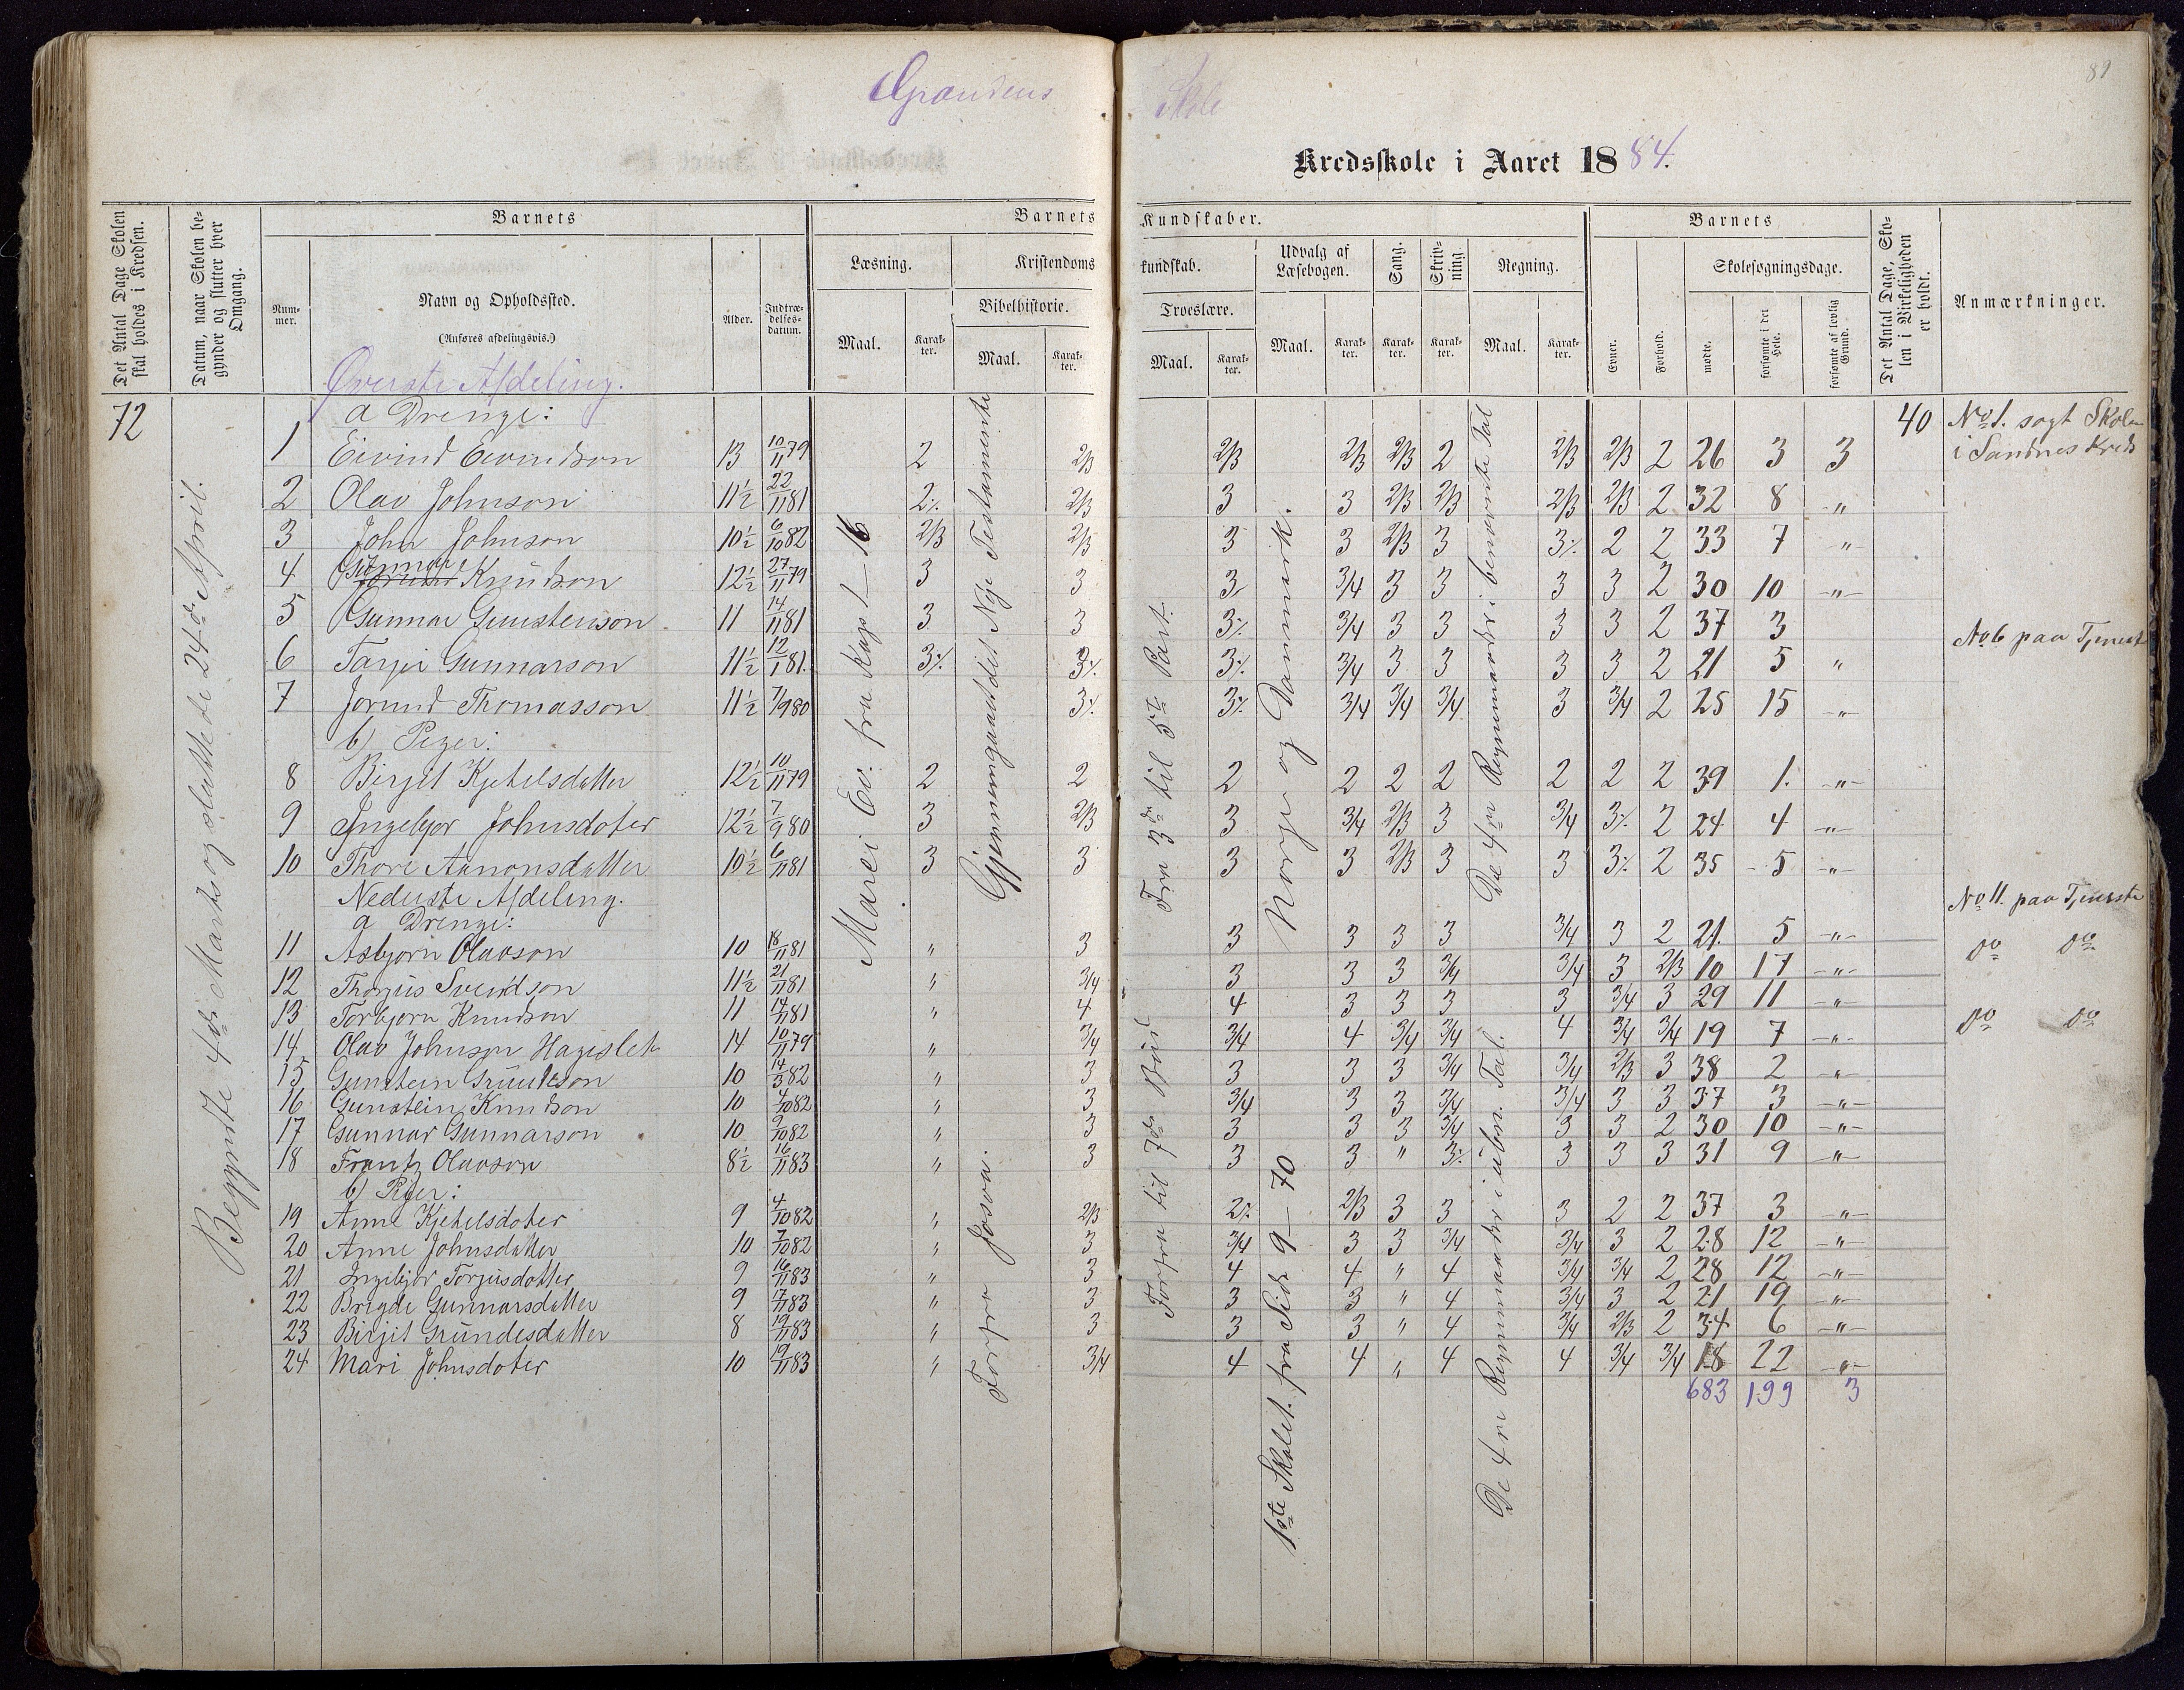 89
Skole
Kredsskole i Aaret 1884.
Det Antal Dage Skolen skal holdes i Kredsen.
Datum, naar Skolen begynder og slutter hver Omgang.
Barnets
Nummer.
Navn og Opholdssted.
(Anføres afdelingsvis.)
Alder.
Indtrædelsesdatum.
Barnets Kundskaber.
Læsning.
Maal.
Karakter.
Kristendomskundskab.
Bibelhistorie.
Maal.
Karakter.
Troeslære.
Maal.
Karakter.
Udvalg af Læsebogen.
Maal.
Karakter.
Sang.
Karakter.
Skrivning.
Karakter.
Regning.
Maal.
Karakter.
Barnets
Evner.
Forhold.
Skolesøgningsdage.
mødte.
forsømte i det Hele.
forsømte af lovlig Grund.
Det Antal Dage, Skolen i Virkeligheden er holdt.
Anmærkninger.
72
Begyndte 4de Marts og sluttede 24de April.
Øverste Afdeling.
a Drenge:
1 Eivind Eivindson 13 10/11 79 2 2/3 2/3 2/3 2/3 2 2/3 2/3 2 26 3 3 40 No 1. søgt Skolen i Sandnes Kreds
2 Olav Johnson 11½ 22/11 81 2% 2/3 3 3 2/3 2/3 2/3 2/3 2 32 8 "
3 John Johnson 10½ 6/10 82 2/3 2/3 3 3 2/3 3 3% 2 2 33 7 "
4 Gunnar Knudson 12½ 27/11 79 3 3 3 3/4 3 3 3 3 2 30 10 "
5 Gunnar Gunstenson 11 14/11 81 3 3 3% 3/4 3 3 3 3 2 37 3
6 Tarjei Gunnarson 11½ 12/1 81. 3% 3% 3% 3/4 3 3 3 3 2 21 5 " No 6 paa Tjeneste
7 Jorund Thomasson 11½ 7/9 80 3% 3% 3/4 3/4 3/4 3 3/4 2 25 15 "
b) Piger:
8 Birgit Kjetelsdatter 12½ 10/11 79 2 2 2 2 2 2 2 2 2 39 1. "
9 Ingebjør Johnsdoter 12½ 7/9 80 3 2/3 3 3/4 2/3 3 3/4 3% 2 24 4 "
10 Thore Aanonsdatter 10½ 6/11 81 3 3 3 3 2/3 3 3 3% 2 35 5 "
Nederste Afdeling.
a Drenge:
11 Asbjørn Olavson 10 18/11 81 " 3 3 3 3 3 3/4 3 2 21. 5 " No 11. paa Tjeneste
12 Thorjus Sveindson 11½ 21/11 81 " 3/4 3 3 3 3/4 3/4 3 2/3 10 17 " do do
13 Torbjørn Knudson 11 14/11 81 " 4 4 3 3 3 3 3/4 3 29 11 "
14 Olav Johnson Hageslet 14 10/11 79 " 3/4 3/4 4 3/4 3/4 4 3/4 3/4 19 7 " do do
15 Gunstein Grundeson 10 14/3 82 " 3 3 3 3 3/4 3/4 2/3 3 38 2 "
16 Gunstein Knudson 10 4/10 82 " 3 3/4 3 3 3/4 3/4 3 3 37 3 "
17 Gunnar Gunnarson 10 9/10 82 " 3 3 3 3 3/4 3 3 2 30 10 "
18 Frantz Olavson 8½ 16/11 83 " 3 3 3 " 3% 3 3 3 31 9 "
b) Piger:
19 Anne Kjetelsdoter 9 4/10 82 " 2/3 2% 2/3 3 3 3 2 2 37 3 "
20 Anne Johnsdatter 10 7/10 82 " 3 3/4 3 3 3/4 3/4 3 2 28 12 "
21 Ingebjør Torjusdotter 9 16/11 83 " 3 4 4 " 4 3/4 3/4 2 28 12 "
22 Brigde Gunnarsdatter 9 17/11 83 " 3 3 3 " 4 3/4 3 2 21 19 "
23 Birgit Grundesdatter 8 19/11 83 " 3 3 3 " 4 3/4 2/3 2 34 6 "
24 Mari Johnsdoter 10 19/11 83 " 3/4 4 4 " 4 4 3/4 3/4 18 22 "
683 199 3
fra Kap 1 – 16
Gjennemgaaet det Nye Testamente
Forfra Josva.
Fra 3de til 5te Part.
Forfra til 7de Bud
Norge og Danmark.
1ste Skolet. fra Side 9 – 70
De 4re Regnemaader i benævnte Tal
De 4re Regnemaader i ubn. Tal.